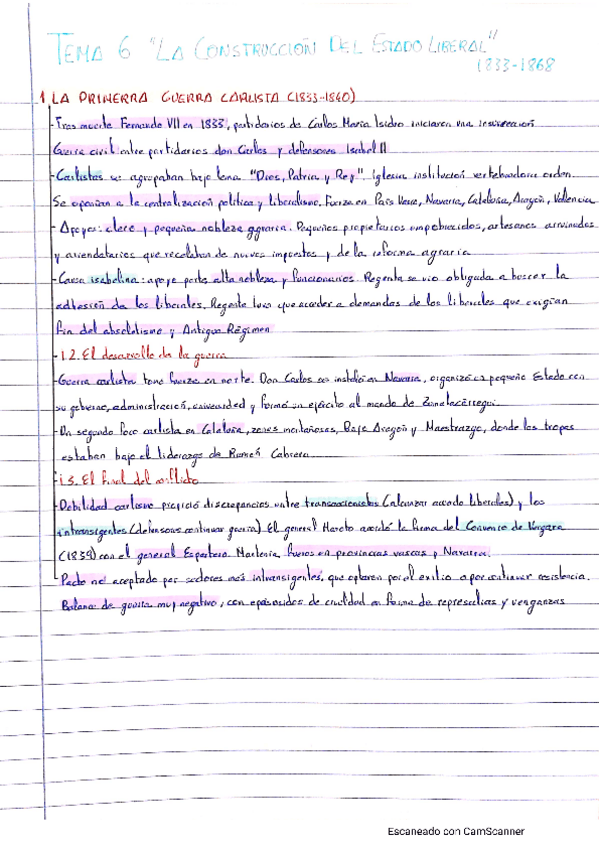 TEMA 6 "LA CONSTRUCCIÓN DEL ESTADO LIBERAL"
1833-1868
1 LA PRIMERRA GUERRA CARLISTA (1833-1840)
-Tras muerte Fernando VII en 1833, partidarios de Carlos María Isidro iniciaron una insurrección
Guerra civil entre partidarios don Carlos y defensores Isabel II
-Carlistas se agrupaban bajo lema "Dios, Patria y Rey". Iglesia institución vertebradora orden.
Se oponían a la centralización política y liberalismo. Fuerza en País Vasco, Navarra, Cataluña, Aragón, Valencia
-Apoyos: clero y pequeña nobleza agraria. Pequeños propietarios empobrecidos, artesanos arruinados
y arrendatarios que recelaban de nuevos impuestos y de la reforma agraria
-Causa isabelina: apoyo parte alta nobleza y funcionarios. Regenta se vio obligada a buscar la
adhesión de los liberales. Regente tuvo que acceder a demandas de los liberales que exigían
fin del absolutismo y Antiguo Régimen
-1.2. El desarrollo de la guerra
-Guerra carlista tomó fuerza en norte. Don Carlos se instaló en Navarra, organizó pequeño Estado con
su gobierno, administración, universidad y formó un ejército al mando de Zumalacárregui
-Un segundo foco carlista en Cataluña, zonas montañosas, Bajo Aragón y Maestrazgo, donde las tropas
estaban bajo el liderazgo de Ramón Cabrera
-1.3. El final del conflicto
-Debilidad carlismo propició discrepancias entre transaccionistas (alcanzar acuerdo liberales) y los
intransigentes (defensores continuar guerra) El general Maroto acordó la firma del Convenio de Vergara
(1839) con el general Espartero. Mantenía fueros en provincias vascas y Navarra.
-Pacto no aceptado por sectores más intransigentes, que optaron por el exilio o por continuar resistencia.
Balance de guerra muy negativo, con episodios de crueldad en forma de represalias y venganzas
Escaneado con CamScanner